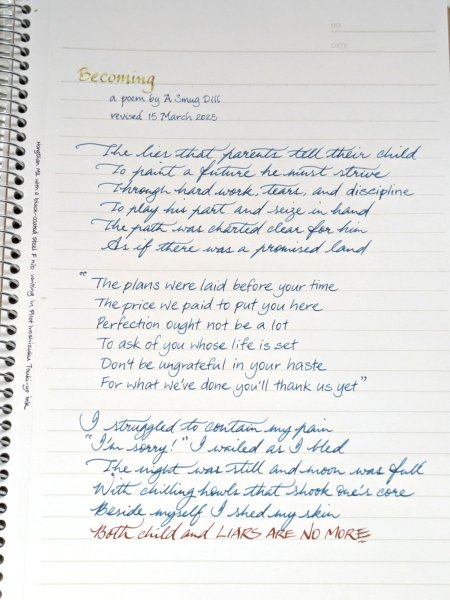 NO.
DATE
Becoming
a poem by A Smug Dill
revised 15 March 2025
The lies that parents tell their child
To paint a future he must strive
Through hard work, tears, and discipline
To play his part and seize in hand
The path was charted clear for him
As if there was a promised land
"The plans were laid before your time
The price we paid to put you here
Perfection ought not be a lot
To ask of you whose life is set
Don't be ungrateful in your haste
For what we've done you'll thank us yet"
I struggled to contain my pain
"I'm sorry!" I wailed as I bled
The night was still and moon was full
With chilling howls that shook one's core
Beside myself I shed my skin
Both child and LIARS ARE NO MORE
with a black-coated steel F nib writing in Pilot Iroshizuku Tsuki-yo ink